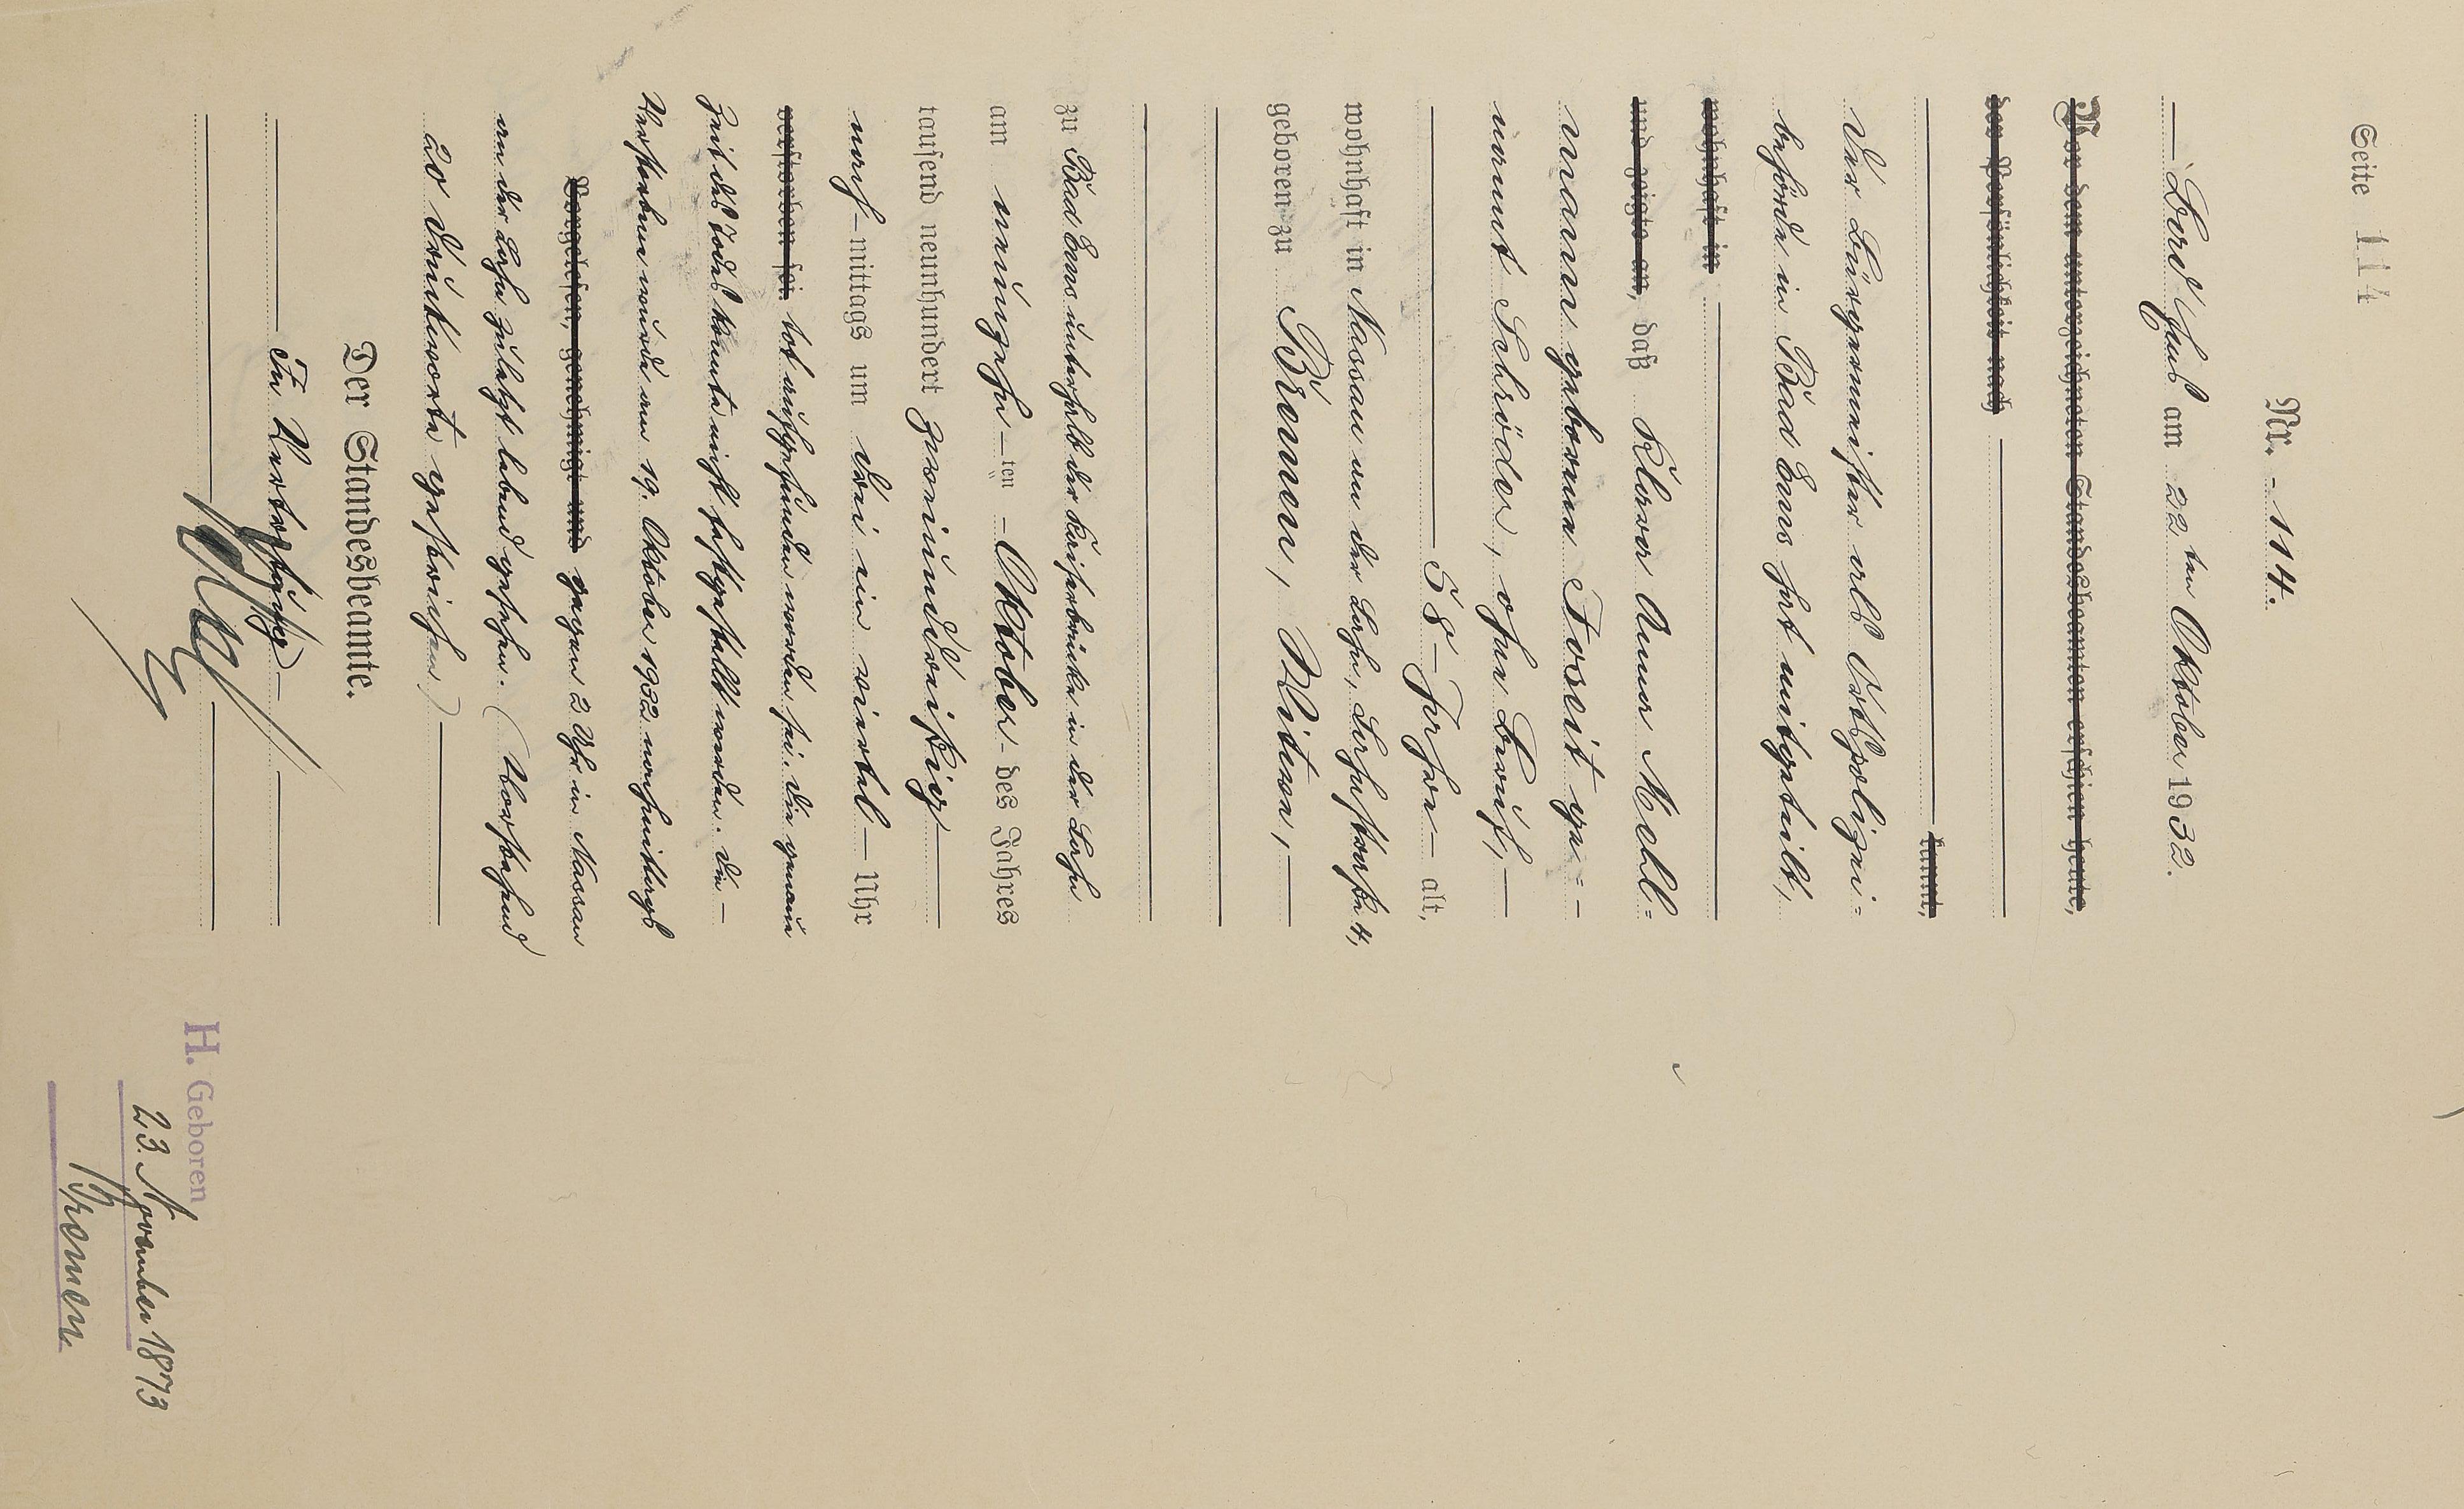 Seite 114
Nr. - 114.
Bad Ems am 22ten Oktober 1932.
Vor dem unterzeichneten Standesbeamten erschien heute,
der Persönlichkeit nach
kannt,
Der Bürgermeister als Ortspolizei-
behörde in Bad Ems hat mitgeteilt,
wohnhaft in
und zeigte an, daß Klara Anna Mell-
mann geborene Foseit ge-
nannt Schröder, ohne Beruf,
58 - Jahre - alt,
wohnhaft in Nassau an der Lahn, Bahnstraße 4,
geboren zu Bremen,
zu Bad Ems unterhalb der Kaiserbrücke in der Lahn
am neunzehn - ten - Oktober - des Jahres
tausend neunhundert zweiunddreißig
nach - mittags um drei ein viertel - Uhr
verstorben sei. tot aufgefunden worden sei. Die genaue
Zeit des Todes konnte nicht festgestellt werden. Die -
Verstorbene wurde am 19. Oktober 1932 nachmittags
Vorgelesen, genehmigt und gegen 2 Uhr in Nassau
an der Lahn zuletzt lebend gesehen. (Vorstehend
20 Druckworte gestrichen)
Der Standesbeamte.
In Vertretung
H. Geboren
23. November 1873
Bremen